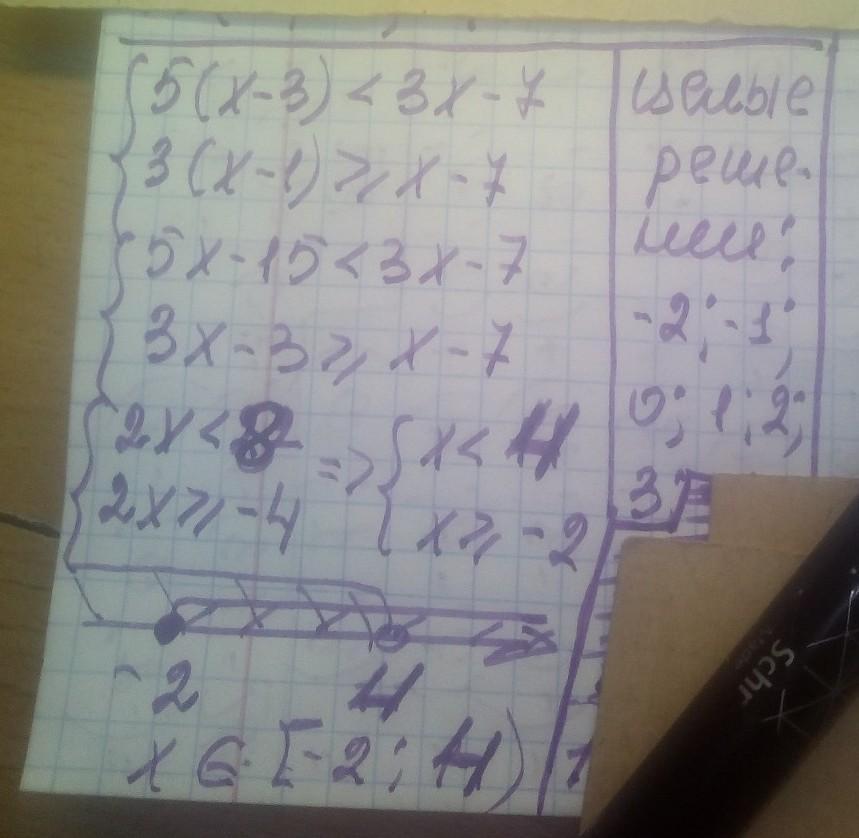 5(x-3) < 3x - 7
3(x-1) ⩾ x - 7
5x - 15 < 3x - 7
3x - 3 ⩾ x - 7
2x < 8 => x < 4
2x ⩾ -4 x ⩾ -2
-2 4
x ∈ [-2; 4)
целые
реше-
нии:
-2; -1;
0; 1; 2;
3
Schr